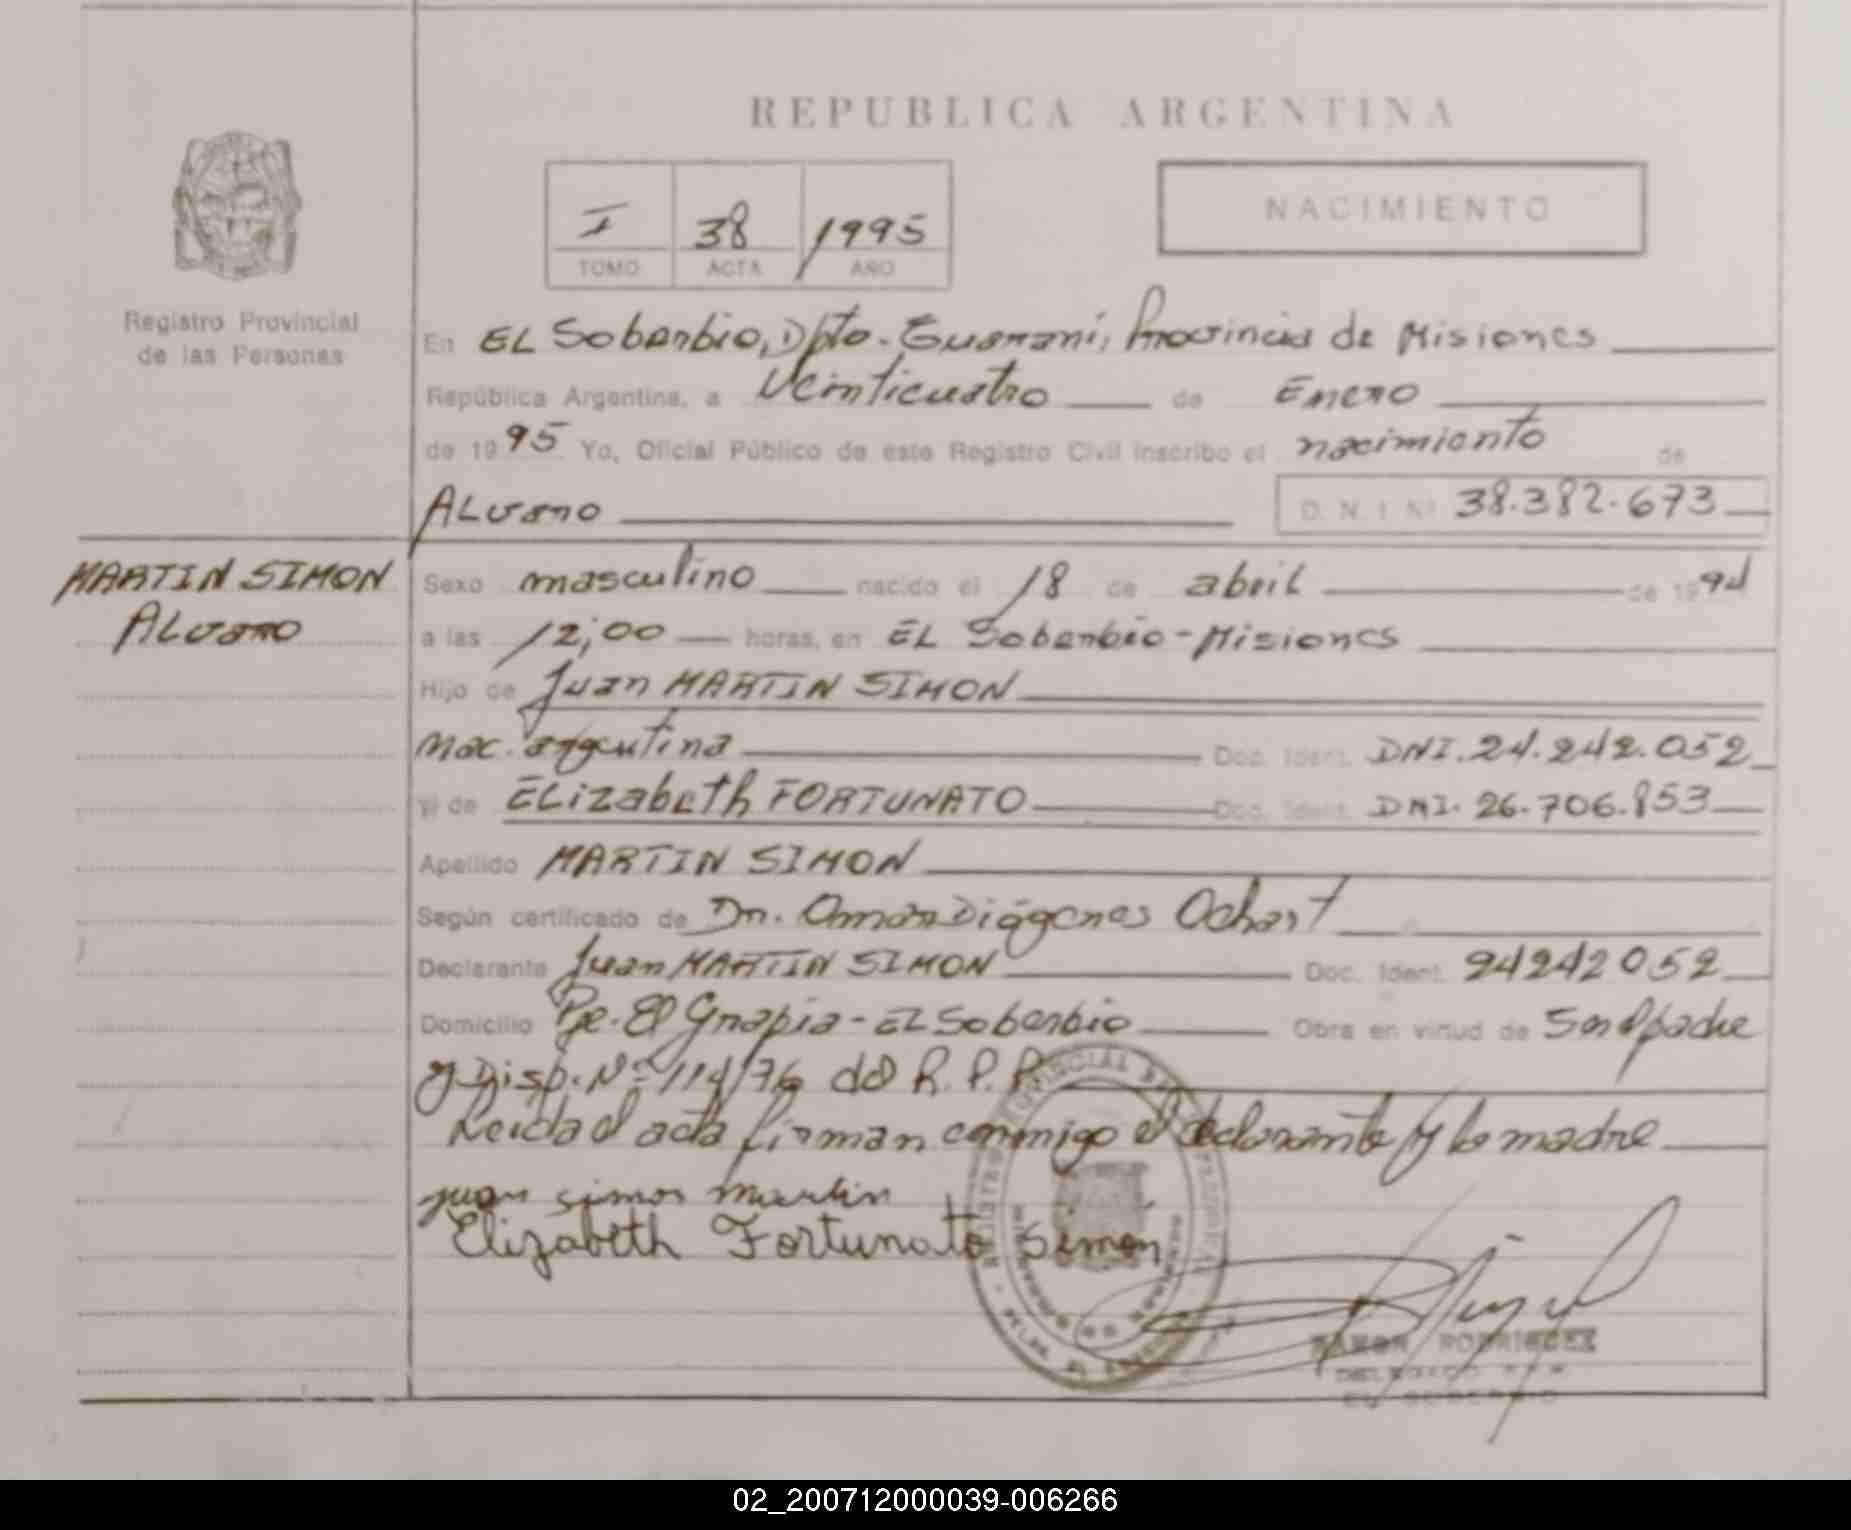 REPUBLICA ARGENTINA
I 38 1995
TOMO ACTA AÑO
NACIMIENTO
Registro Provincial
de las Personas
En EL Soberbio, Dpto. Guaraní, Provincia de Misiones
República Argentina, a Veinticuatro de Enero
de 1995 Yo, Oficial Público de este Registro Civil inscribo el nacimiento de
Alvaro D. N. I Nº 38.382.673
MARTIN SIMON
Alvaro
Sexo masculino nacido el 18 de abril de 1994
a las 12,00 horas, en EL Soberbio-Misiones
Hijo de Juan MARTIN SIMON
nac. argentina Doc. Ident. DNI. 24.242.052
y de ELizabeth FORTUNATO Doc. Ident. DNI. 26.706.853
Apellido MARTIN SIMON
Según certificado de Dr. Omar Diógenes Ochart
Declarante Juan MARTIN SIMON Doc. Ident. 24242052
Domicilio Pje. El Grapia-EL Soberbio Obra en virtud de Ser el padre
y Disp. Nº 114/76 del R. P. P.
Leida el acta firman conmigo el declarante y la madre
juan simon martin
Elizabeth Fortunato Simón
RAMON RODRIGUEZ
DELEGADO
EL SOBERBIO
02_200712000039-006266